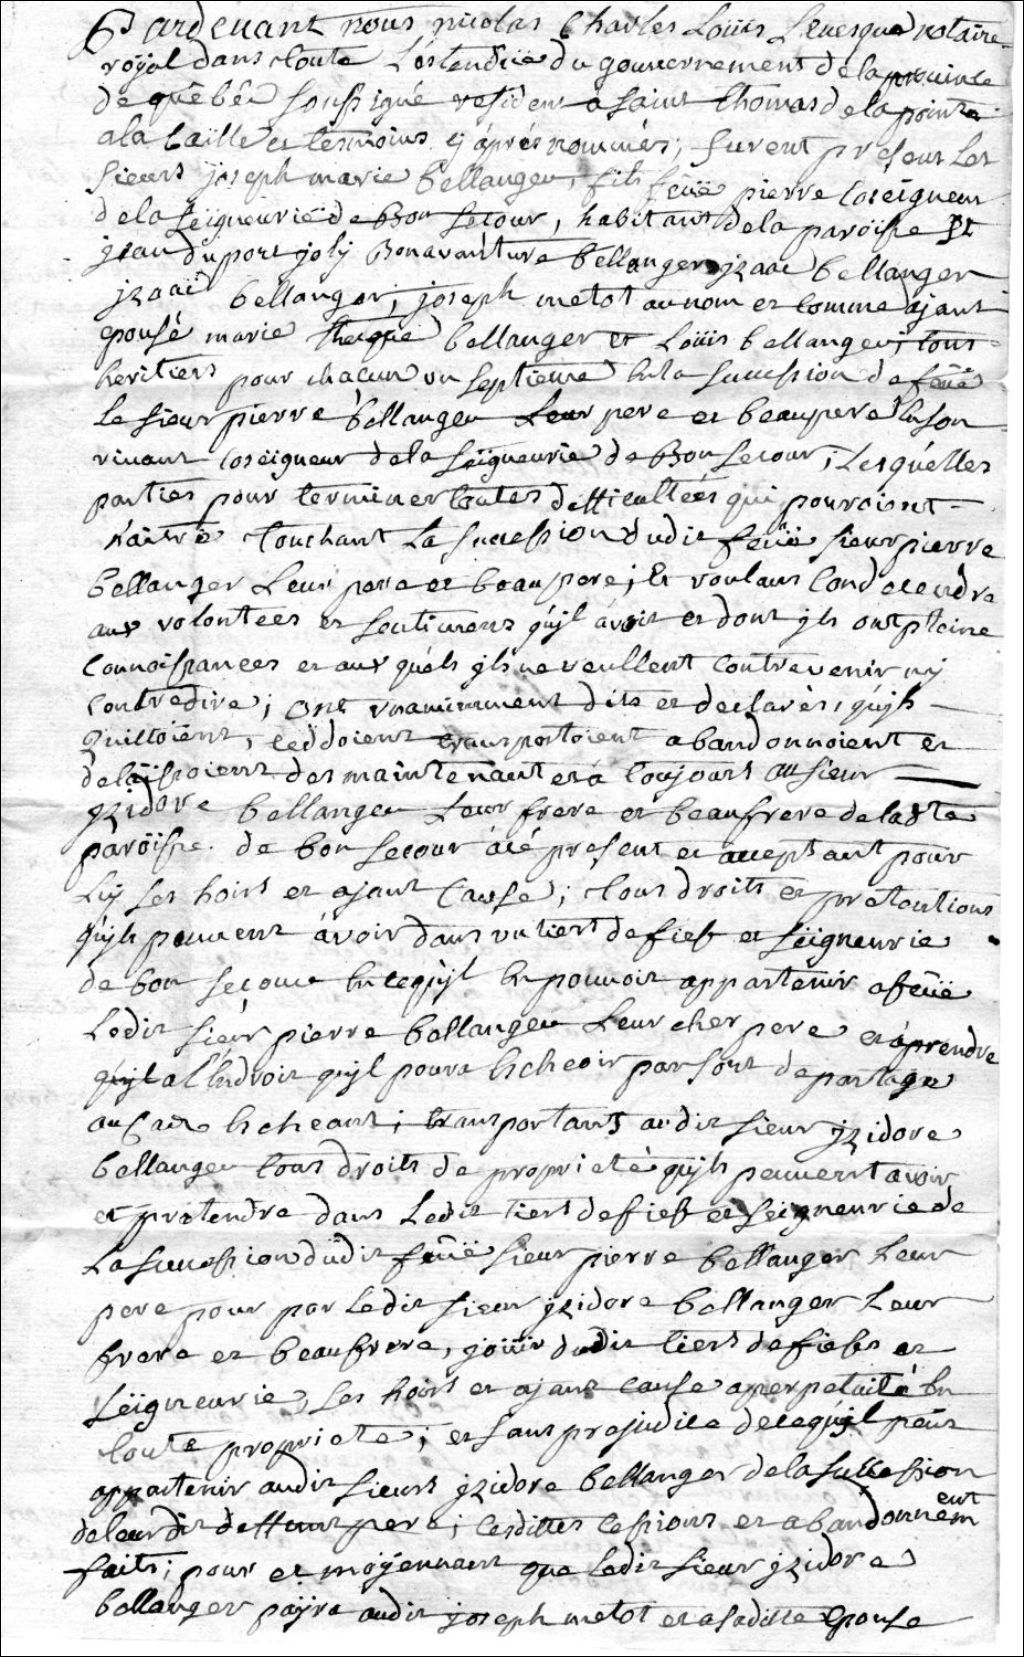 Pardevant nous nicolas Charles Loüis Levesque notaire
royal dans toute L'estendüe du gouvernement de la province
de quebéc soussigné resident a saint thomas de la pointe
a la Caille et tesmoins cy áprés nommés; furent presens Les
sieurs joseph marie bellanger, fils feüe pierre Coseigneur
de la seigneurie de Bon secour, habitant de la paroisse St
jean du port joly Bonavanture bellanger jzaac bellanger
jzaac bellanger; joseph metot au nom et comme ajant
epousé marie bellanger et Loüis bellanger; tous
heritiers pour chacun un septieme en la succession de feüe
Le sieur pierre bellanger Leur pere et beaupere en son
vivant coseigneur de la seigneurie de Bon secour; Lesquélles
parties pour terminer toutes difficultées qui pouroient
náitre touchant La succession dudit feüe sieur pierre
bellanger Leur pere et beaupere; Et voulans Condecendre
aux volontees et sentimens qúyl ávoit et dont yls ont pleine
Connoissances et aux quéls yls ne veullent contrevenir ny
contredire; ont unanimement dits et declarés, qúyls
quittoient, ceddoient transportoient abandonnoient et
delaissoient des maintenant et a toujours au sieur
jzidore bellanger Leur frere et beaufrere de la dte
paroisse de bon secour á cé present et acceptant pour
Luy ses hoirs et ajant Cause; tous droits et pretentions
qúyls peuvent ávoir dans un tiers de fief et seigneurie
de bon secour en ce qúyl en pouvoit appartenir a feüe
Ledit siéur pierre bellanger Leur cher pere et á prendre
qúyl a l'endroit qúyl poura Echeoir par sort de partage
au Cas Echeant; transportants audit sieur jzidore
bellanger tous droits de proprieté qúyls peuvent avoir
et pretendre dans Ledit tiers de fief et seigneurie de
La succession dudit feüe sieur pierre bellanger Leur
pere pour par Ledit sieur jzidore bellanger Leur
frere et beaufrere, joüir dudit tiers de fiefs et
seigneurie, ses hoirs et ajant cause a perpetuité En
toute propriete; et sans prejudice de ce qúyl peut
appartenir audit sieurs jzidore bellanger de la succession
de leur dit deffunt pere; cesdittes cessions et abandonnement
faits; pour et moyennant que Ledit sieur jzidore
bellanger payra audit joseph metot et a saditte Epouse